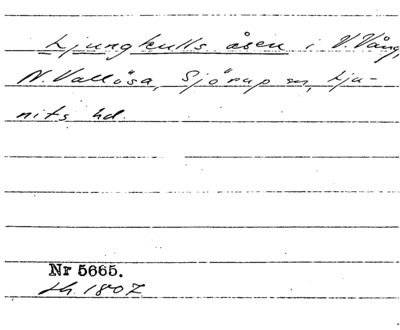 Ljungkulls åsen i V. Vång,
N. Vallösa, Sjörup sn, Lju-
nits hd.
Nr 5665.
Lh. 1807